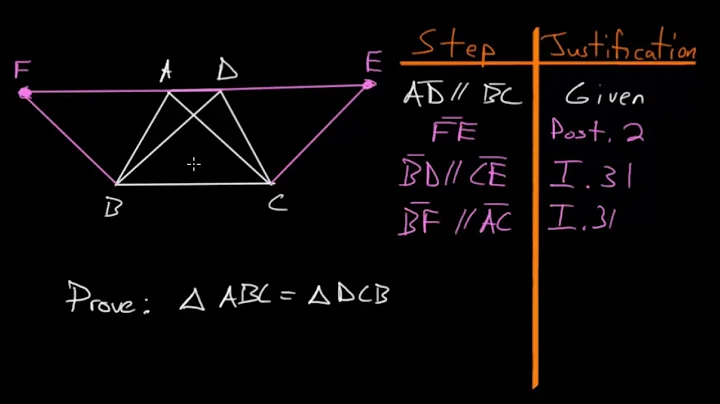 Step Justification
F A D E
A̅D̅ // B̅C̅ Given
F̅E̅ Post. 2
B̅D̅ // C̅E̅ I.31
B̅F̅ // A̅C̅ I.31
B C
Prove: △ ABC = △ DCB